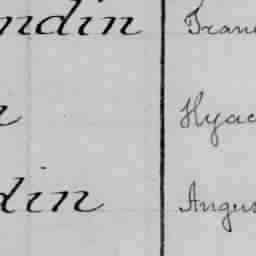 ndin Fran
n Hyac
din Angus